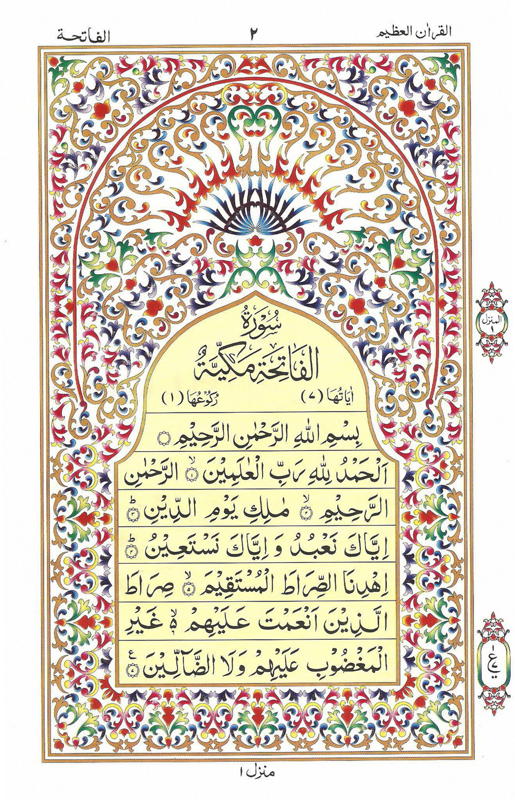 القرأن العظيم ٢ الفاتحة
سُوْرَةُ
الفَاتِحَةِ مَكِّيَّةٌ
اٰيَاتُهَا (٧) رُكُوْعُهَا (١)
بِسْمِ اللّٰهِ الرَّحْمٰنِ الرَّحِيْمِ
اَلْحَمْدُ لِلّٰهِ رَبِّ الْعٰلَمِيْنَ ۙ﴿١﴾ الرَّحْمٰنِ
الرَّحِيْمِ ۙ﴿٢﴾ مٰلِكِ يَوْمِ الدِّيْنِ ؕ﴿٣﴾
اِيَّاكَ نَعْبُدُ وَ اِيَّاكَ نَسْتَعِيْنُ ؕ﴿٤﴾
اِهْدِنَا الصِّرَاطَ الْمُسْتَقِيْمَ ۙ﴿٥﴾ صِرَاطَ
الَّذِيْنَ اَنْعَمْتَ عَلَيْهِمْ ۙ۬ غَيْرِ
الْمَغْضُوْبِ عَلَيْهِمْ وَلَا الضَّآلِّيْنَ
المنزل
منزل ١